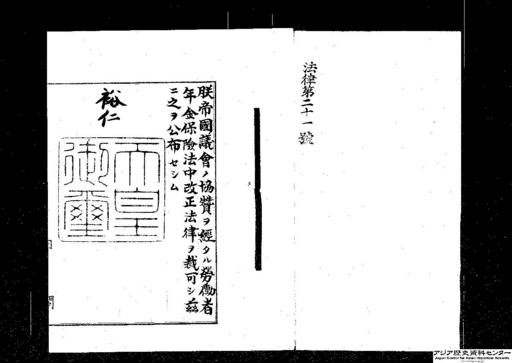 法律第二十一號
朕帝國議會ノ協贊ヲ經タル勞働者
年金保險法中改正法律ヲ裁可シ茲
ニ之ヲ公布セシム
裕仁
天皇
御璽
アジア歴史資料センター
Japan Center for Asian Historical Records